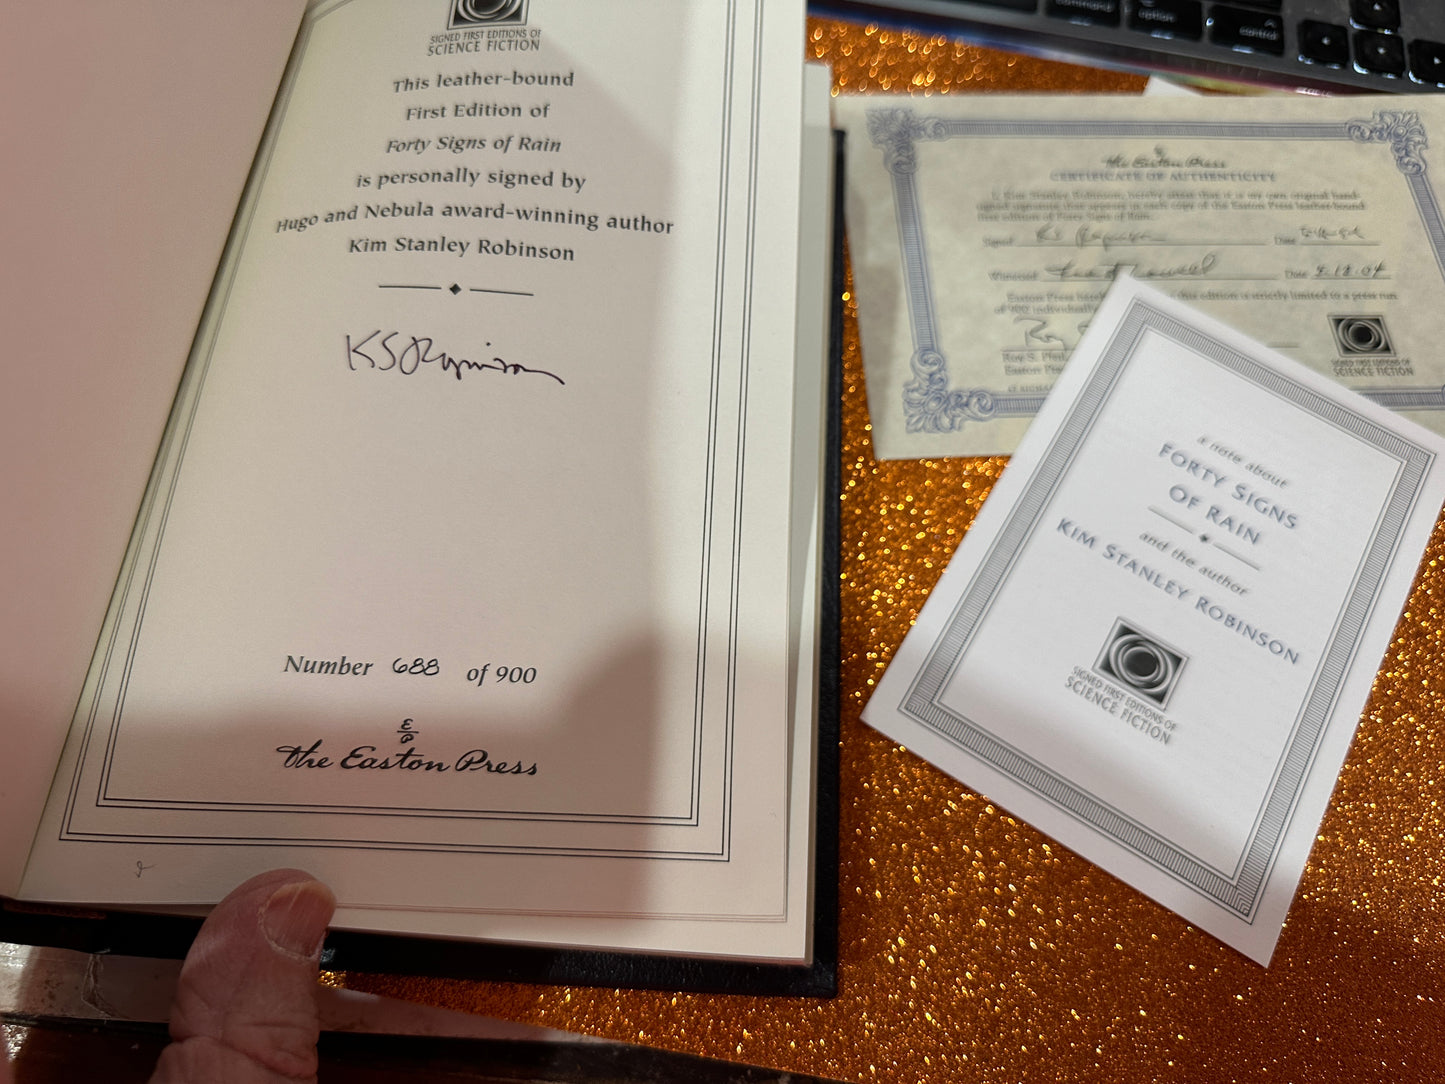 SIGNED FIRST EDITIONS OF
SCIENCE FICTION
This leather-bound
First Edition of
Forty Signs of Rain
is personally signed by
Hugo and Nebula award-winning author
Kim Stanley Robinson
KS Robinson
Number 688 of 900
The Easton Press
command
option
control
The Easton Press
CERTIFICATE OF AUTHENTICITY
I, Kim Stanley Robinson, hereby attest that it is my own original hand-
signed signature that appears in each copy of the Easton Press leather-bound
first edition of Forty Signs of Rain.
Signed KS Robinson Date
Witnessed Date 5.18.04
Easton Press this edition is strictly limited to a press run
of 900 individually
Roy S.
Easton
SIGNED FIRST EDITIONS OF
SCIENCE FICTION
a note about
FORTY SIGNS
OF RAIN
and the author
KIM STANLEY ROBINSON
SIGNED FIRST EDITIONS OF
SCIENCE FICTION